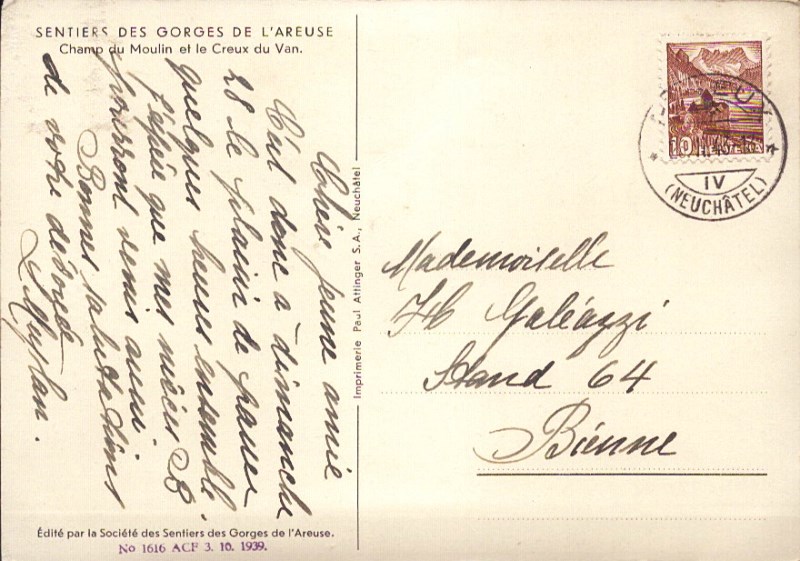 SENTIERS DES GORGES DE L'AREUSE
Champ du Moulin et le Creux du Van.
Chère jeune amie
C'est donc à dimanche
28 le plaisir de passer
quelques heures ensemble.
J'espère que mes nièces B
pourront venir aussi.
Bonnes salutations
de votre dévouée
Imprimerie Paul Attinger S. A., Neuchâtel
10
IV
(NEUCHÂTEL)
Mademoiselle
Galéazzi
Stand 64
Bienne
Édité par la Société des Sentiers des Gorges de l'Areuse.
No 1616 ACF 3. 10. 1939.